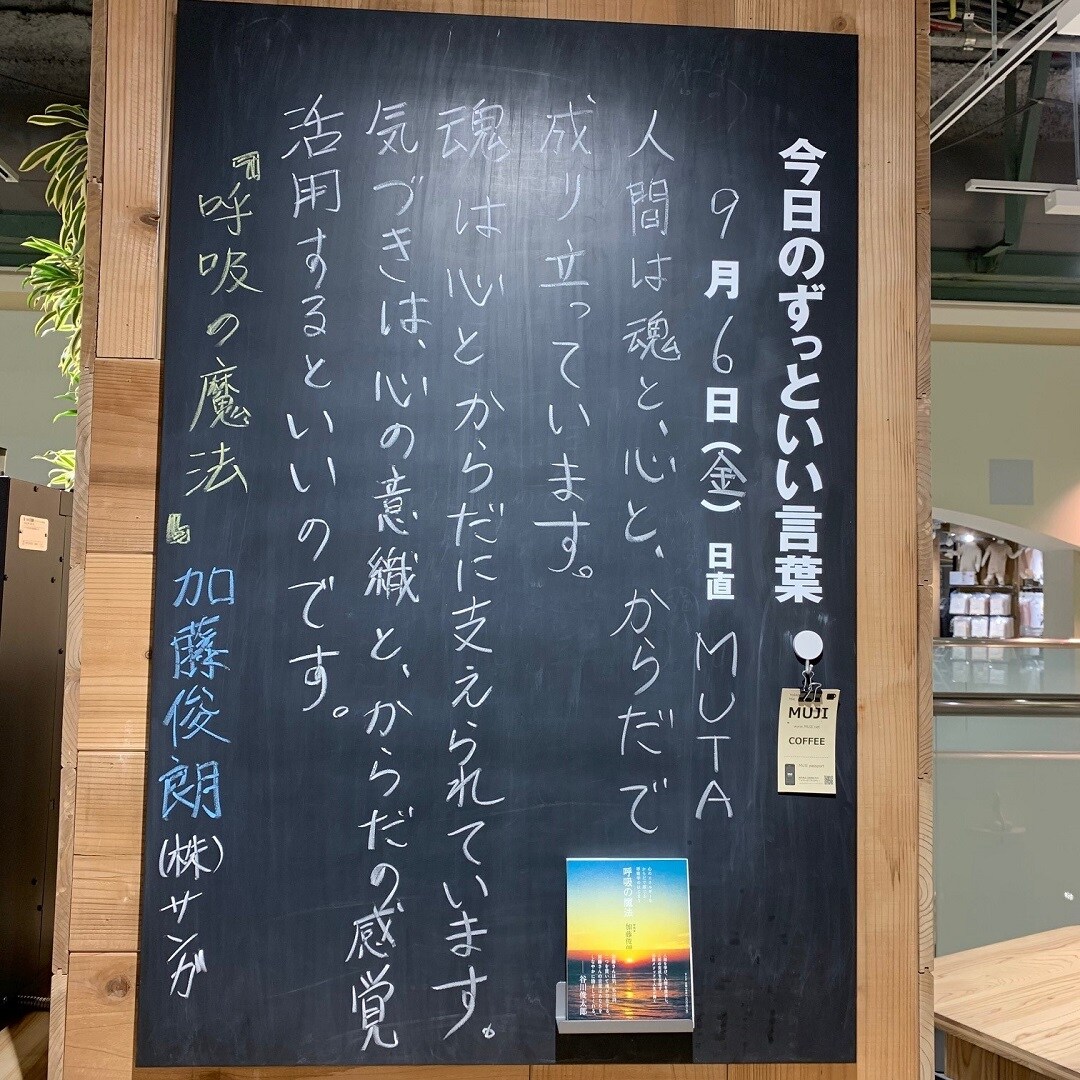 今日のずっといい言葉
9月6日(金) 日直 MUTA
人間は魂と、心と、からだで
成り立っています。
魂は心とからだに支えられています。
気づきは、心の意織と、からだの感覚
活用するといいのです。
『呼吸の魔法』 加藤俊朗 (株)サンガ
MUJI
COFFEE
呼吸の魔法 加藤俊朗
谷川俊太郎